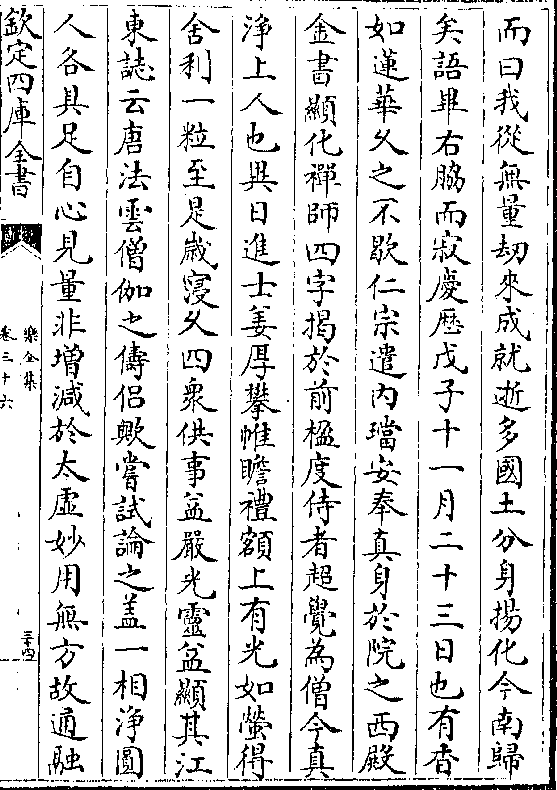 而曰我從無量劫來成就逝多國土分身揚化今南歸
矣語畢右脇而寂慶厯戊子十一月二十三日也有香
如蓮華乆之不歇仁宗遣内璫安奉真身於院之西殿
金書顯化禪師四字揭於前楹度侍者超覺為僧今真
淨上人也異日進士姜厚攀帷瞻禮額上有光如螢得
舍利一粒至是嵗寖乆四衆供事益嚴光靈益顯其江
東誌云唐法雲僧伽之儔侣歟嘗試論之盖一相淨圓
人各具足自心見量非增減於太虚妙用無方故通融
欽定四庫全書
樂全集
卷三十六
三十四